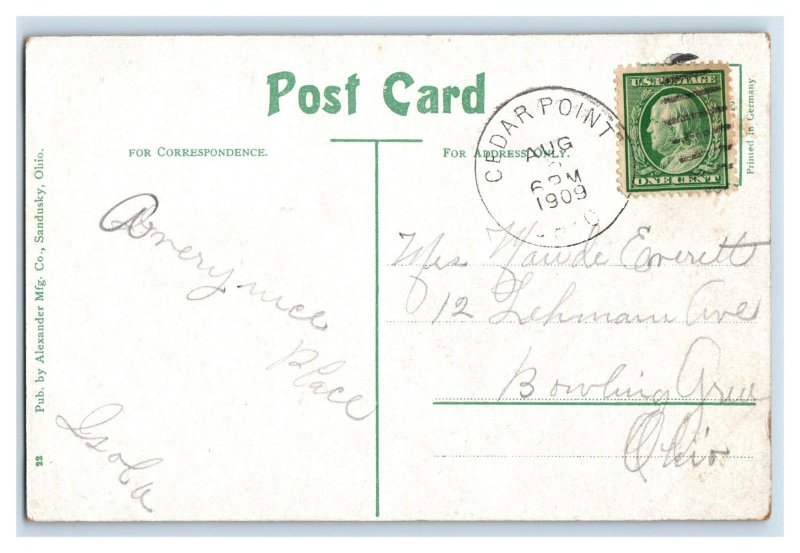 Post Card
FOR CORRESPONDENCE.
FOR ADDRESS ONLY.
CEDAR POINT
AUG
6 PM
1909
OHIO
U.S. POSTAGE
ONE CENT
Printed in Germany
Pub. by Alexander Mfg. Co., Sandusky, Ohio.
22
A very nice
Place
Isola
Mrs Maude Everett
12 Lehmann Ave
Bowling Green
Ohio